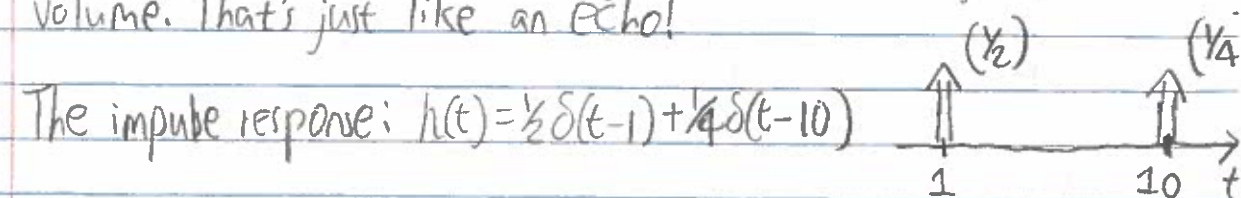 volume. That's just like an echo!
(1/2) (1/4
The impulse response: h(t)=½δ(t-1)+¼δ(t-10)
1 10 t